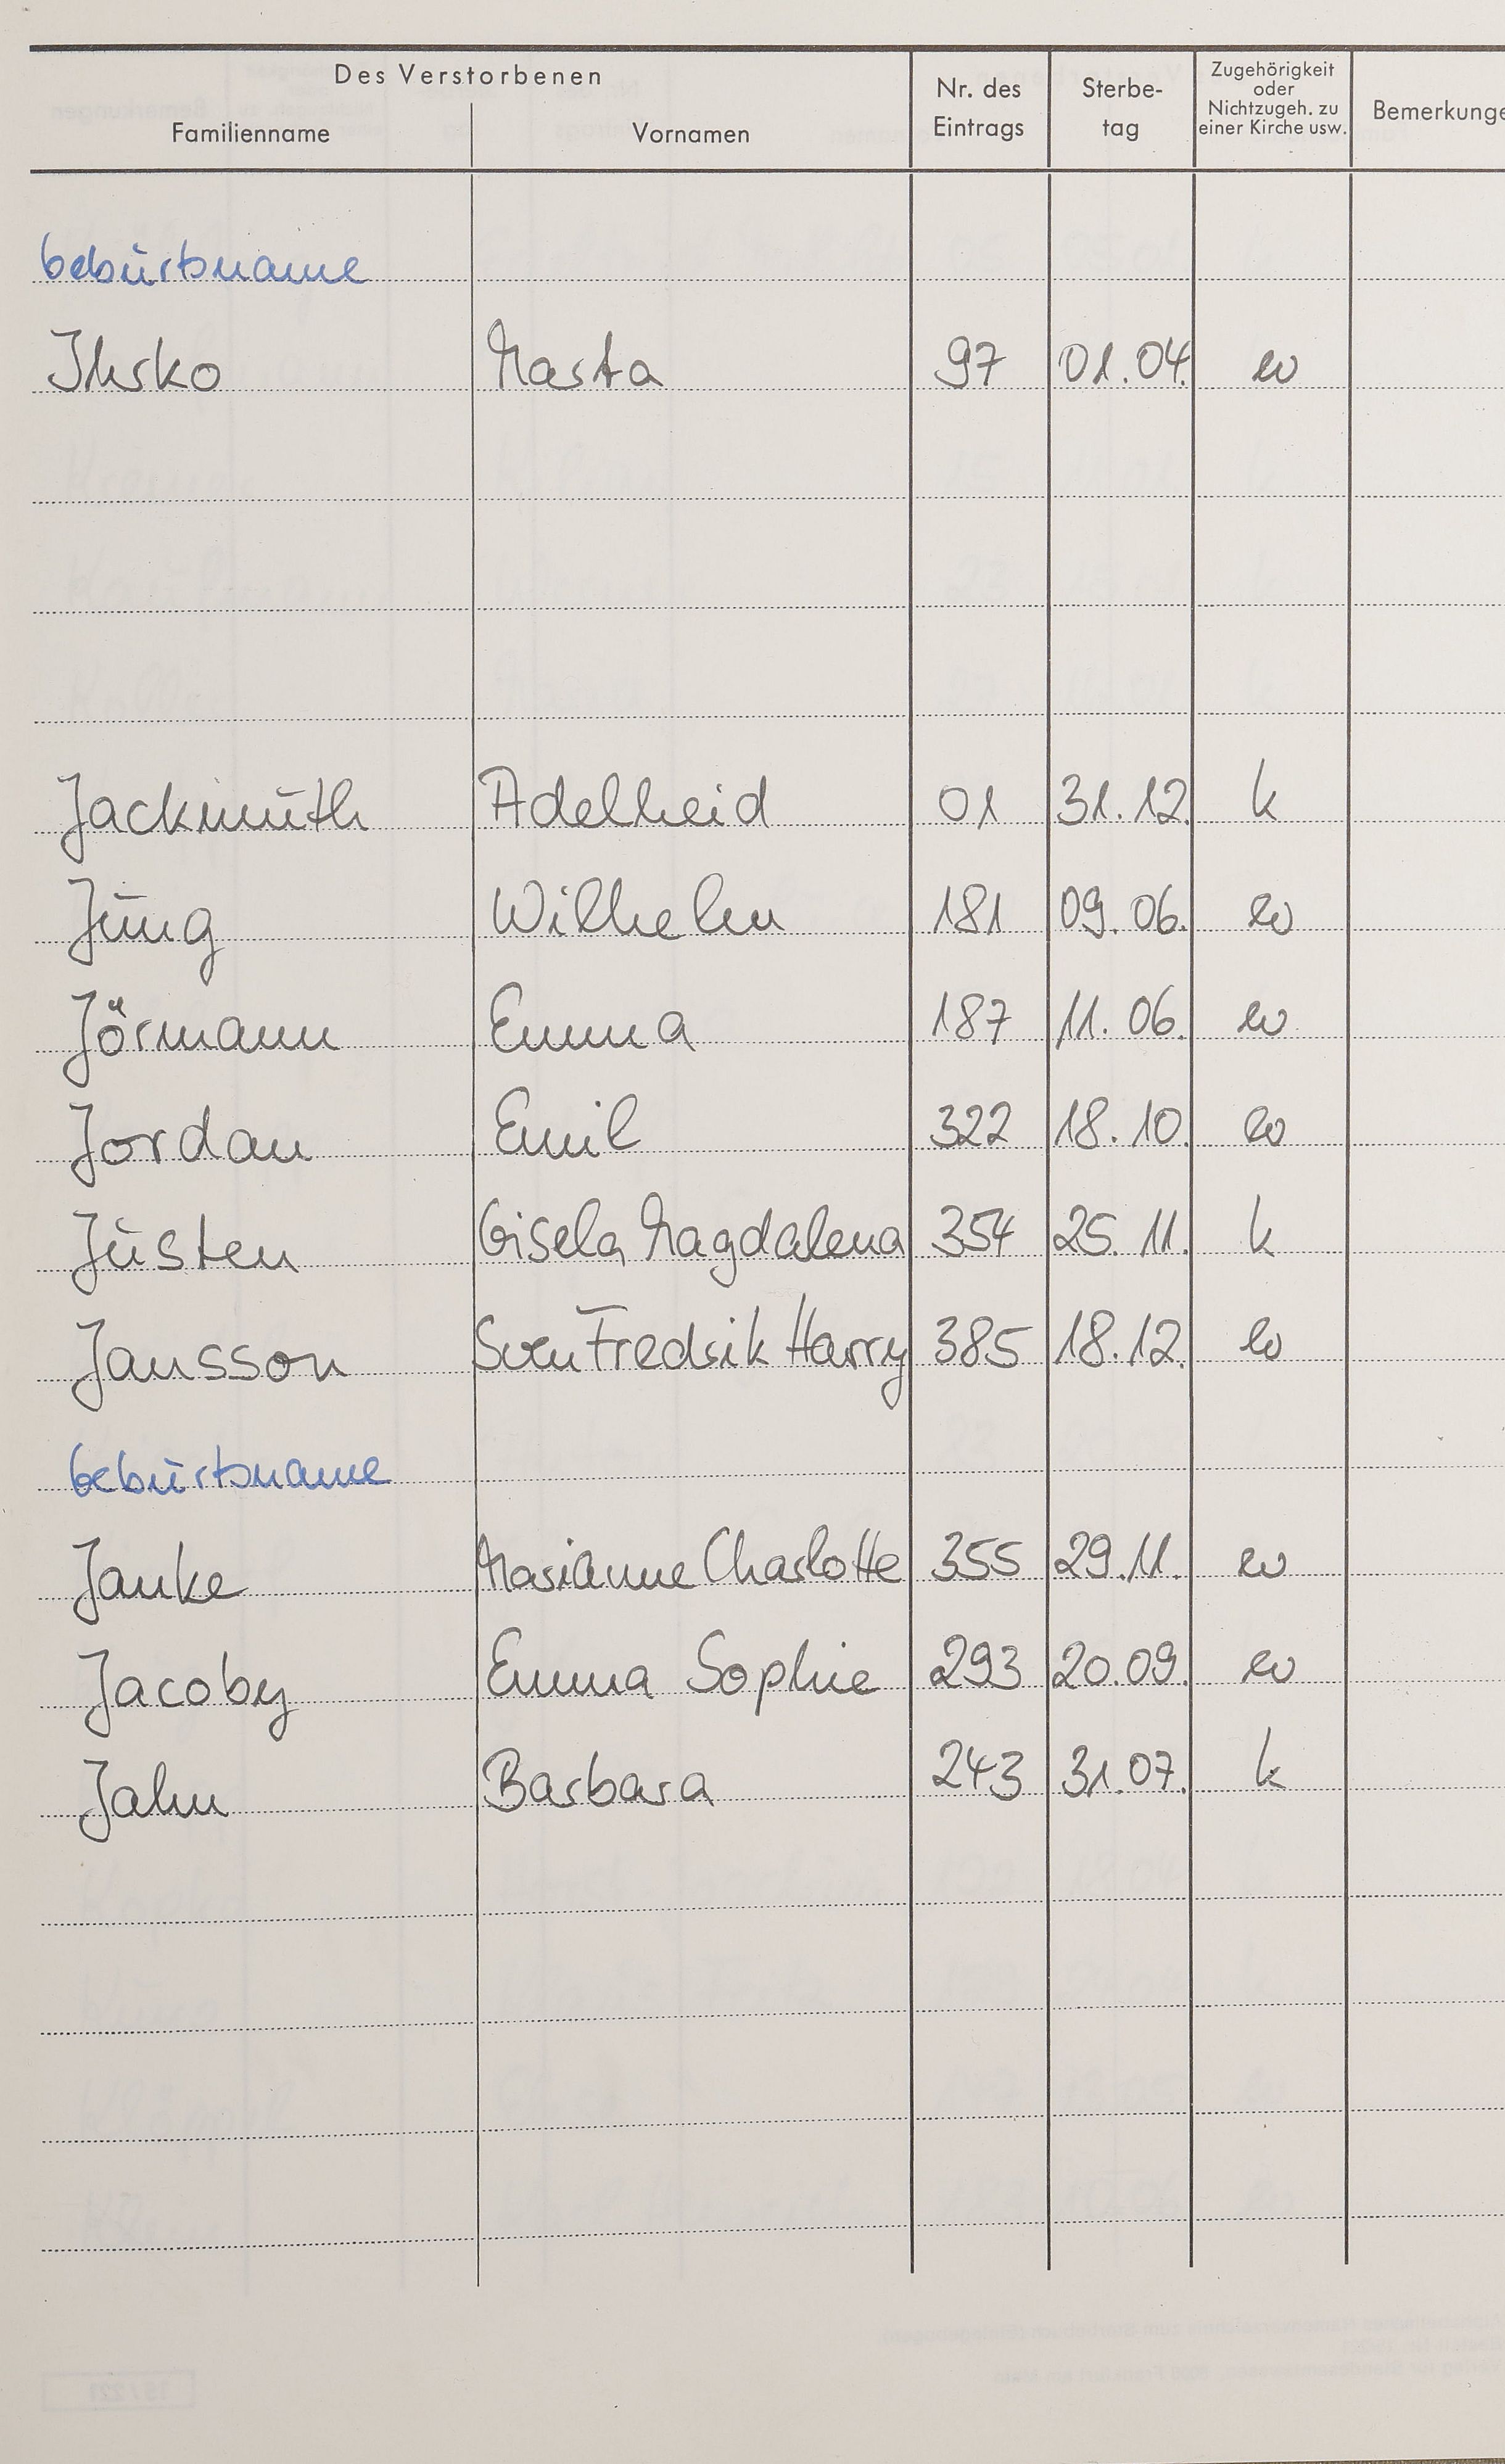 Des Verstorbenen
Familienname Vornamen Nr. des Eintrags Sterbe-tag Zugehörigkeit oder Nichtzugeh. zu einer Kirche usw. Bemerkunge
Geburtsname
Ihrko Marta 97 01.04. ev
Jackmuth Adelheid 01 31.12. k
Jung Wilhelm 181 09.06. ev
Jörmann Emma 187 11.06. ev
Jordan Emil 322 18.10. ev
Justen Gisela Magdalena 354 25.11. k
Jansson Sven Fredrik Harry 385 18.12. ev
Geburtsname
Janke Marianne Charlotte 355 29.11. ev
Jacoby Emma Sophie 293 20.09. ev
Jahn Barbara 243 31.07. k